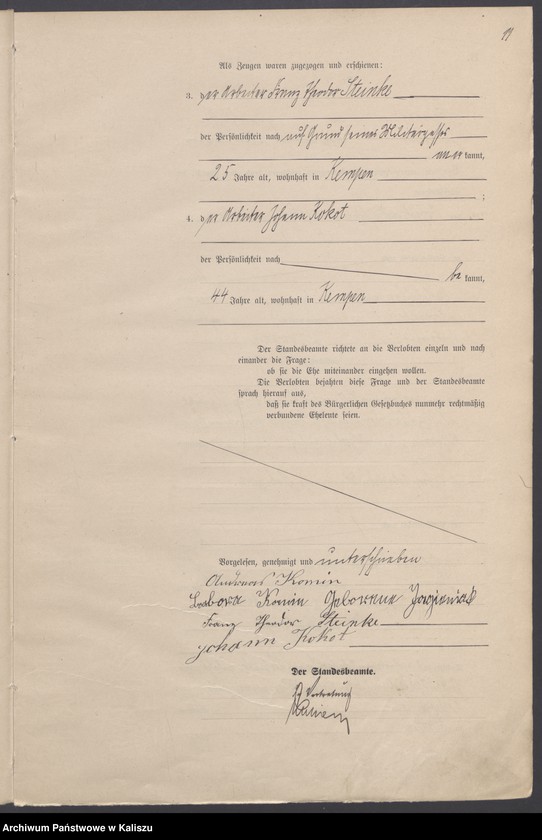 11
Als Zeugen waren zugezogen und erschienen:
3. der Arbeiter Franz Theodor Steinke
der Persönlichkeit nach auf Grund seines Militärpasses
anerkannt,
25 Jahre alt, wohnhaft in Kempen
;
4. der Arbeiter Johann Kokot
der Persönlichkeit nach
bekannt,
44 Jahre alt, wohnhaft in Kempen
Der Standesbeamte richtete an die Verlobten einzeln und nach
einander die Frage:
ob sie die Ehe miteinander eingehen wollen.
Die Verlobten bejahten diese Frage und der Standesbeamte
sprach hierauf aus,
daß sie kraft des Bürgerlichen Gesetzbuches nunmehr rechtmäßig
verbundene Eheleute seien.
Vorgelesen, genehmigt und unterschrieben
Andreas Konin
Barbara Konin Geborene
Franz Theodor Steinke
Johann Kokot
Der Standesbeamte.
In Vertretung
Archiwum Państwowe w Kaliszu